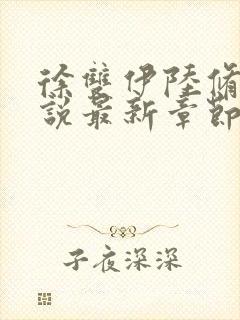 徐雙伊陸脩
說最新章節
子夜深深